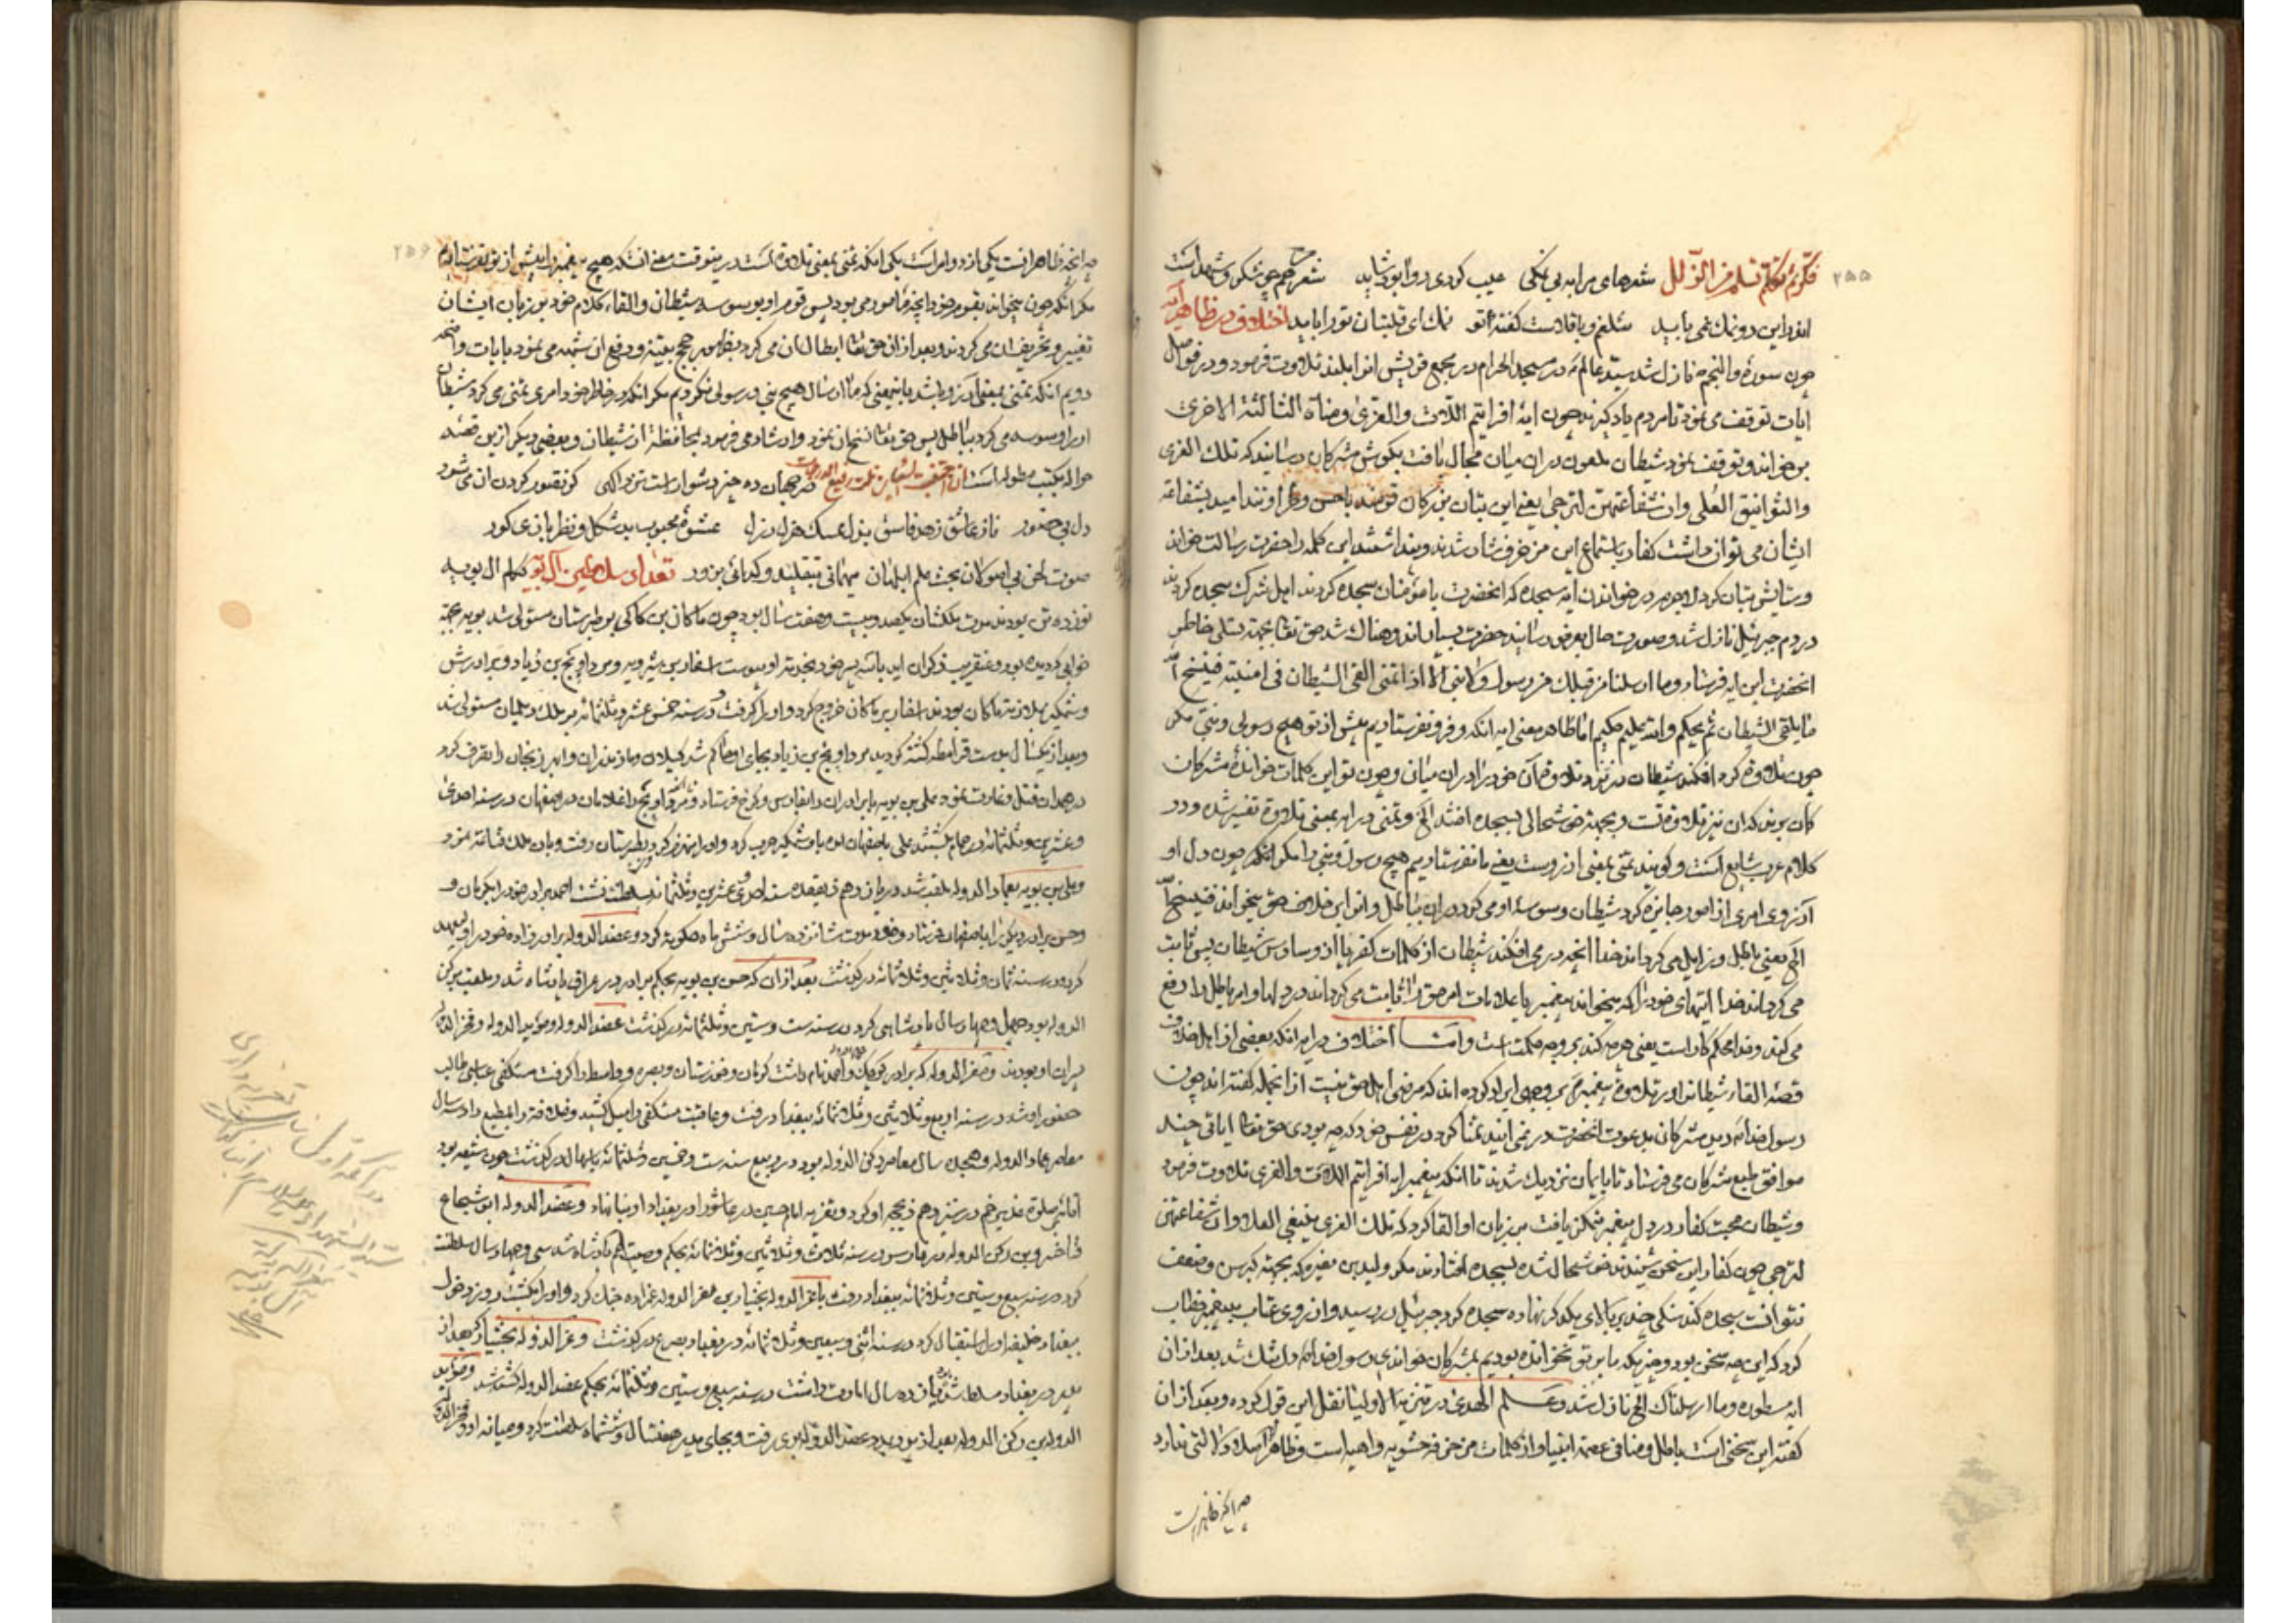 ۲۵۵
فکر ثم تکلم تسلم من الزلل شعرهای مرا به بی نمکی عیب کردی روا بود شاید شعر من همچو شکر و شهد است
اندر این دو نمک نمی باید شلغم و باقلاست گفته تو نمک ای قلتبان تو را باید اختلاف در ظاهر آیه
چون سورهٔ والنجم نازل شد سید عالم در مسجد الحرام در مجمع قریش انرا بلند تلاوت فرمود و در فواصل
ایات توقف می نمود تا مردم یاد گیرند چون ایهٔ افرایتم اللات والعزی ومناة الثالثة الاخری
بر خواند و توقف نمود شیطان ملعون در ان میان مجال یافت بگوش مشرکان رسانید که تلک الغری
والغرانیق العلی وان شفاعتهن لترجی یعنی این بتان بزرگان قومند امید بشفاعة
ایشان می توان داشت کفار باستماع این مزخرف شاد شدند و پنداشتند این کلمه را حضرت رسالت خواند
و ستایش بتان کرد لاجرم در خواندن ایه سجده که انحضرت با مؤمنان سجده کردند اهل شرک سجده کردند
در دم جبرئیل نازل شد و صورت حال بعرض رسانید حضرت بسیار اندوهناک شد حق تعا بجهة تسلی خاطر
انحضرت این ایه فرستاد وما ارسلنا من قبلک من رسول ولا نبی الا اذا تمنی القی الشیطان فی امنیته فینسخ الله
ما یلقی الشیطان ثم یحکم والله علیم حکیم اما ظاهر معنی ایه انکه و فرو نفرستادیم پیش از تو هیچ رسولی و نبی مکر
چون تلاوة کرد افکند شیطان در نزد تلاوة آن خود را در ان میان و چون تو این کلمات خواندهٔ مشرکان
گمان بردند که ان نیز تلاوة تست و بجهة خوشحالی بسجده افتند الخ و تمنی در ایه بمعنی تلاوة تفسیر شده و در
کلام عرب شایع است و گویند تمنی بمعنی ارزوست یعنی ما نفرستادیم هیچ رسول و نبی را مکر انکه چون دل او
آرزوی امری از امور جایزه کرد شیطان وسوسهٔ او می کرد در ان بباطل و او را بر خلاف حق میخواند فینسخ الله
الخ یعنی باطل و زایل می گرداند خدا انچه در می افکند شیطان از کلمات کفر یا از وساوس شیطان پس ثابت
می گرداند خدا ایتهای خود را که میخواند پیغمبر یا علامات امر حق را ثابت می گرداند در دلها و امر باطل را دفع
می کند و خدا محکم کار است یعنی هر چه کند بر وجه حکمت است و امّا اختلاف در ایه انکه بعضی از اهل خلاف
قصهٔ القاء شیطان را در تلاوة پیغمبر بر وجهی ایراد کرده اند که مرضی اهل حق نیست از انجمله گفته اند چون
رسول خدا دید مشرکان بدعوت انحضرت در نمی ایند تمنا کرد در نفس خود که چه بودی حق تعا ایاتی چند
موافق طبع مشرکان می فرستاد تا بایمان نزدیک شدند تا انکه پیغمبر ایه افرایتم اللات والعزی تلاوت فرمود
و شیطان محبت کفار در دل پیغمبر تمکن یافت بر زبان او القا کرد که تلک الغری ینبغی العلا وان شفاعتهن
لترجی چون کفار این سخن شنیدند خوشحال شده بسجده افتادند مکر ولید بن مغیره که بجهة کبر سن و ضعف
نتوانست سجده کند سنکی چند بر بالای یکدیکر نهاده سجده کرد جبرئیل در رسید و از روی عتاب به پیغمبر خطاب
کرد که این چه سخن بود و چیزیکه ما بر تو نخوانده بودیم بمشرکان خواندی رسول خدا دل تنک شد بعد از ان
ایه مسطوره وما ارسلناک الخ نازل شد و علم الهدی در تنزیه الاولیا نقل این قول کرده و بعد از ان
گفته این سخنی است باطل و منافی عصمة انبیا و از کلمات مزخرفه حشویه واهیه است و ظاهر اصلا دلالتی ندارد
چه انچه ظاهر است
۲۵۶
چه انچه ظاهر است یکی از دو امر است یکی انکه تمنی بمعنی تلاوة است در ینوقت معنی انست که هیچ پیغمبر را پیش از تو نفرستادیم
مکر انکه چون میخواند بقوم خود انچه مامور می بود پس قوم او بوسوسه شیطان و القاء کلام خود بر زبان ایشان
تغییر و تحریف ان می کردند و بعد از ان حق تعا ابطال ان می کرد بظهور حجج بینه و رفع ان شبهه می نمود بایات واضحه
دویم انکه تمنی بمعنی آرزو باشد باینمعنی که ما ارسال هیچ نبی و رسولی نکردیم مکر انکه در خاطر خود امری تمنی می کرد شیطان
او را وسوسه می کرد بباطل پس حق تعا نسخ ان نمود و ارشاد می فرمود بمحافظة از شیطان و بعضی دیگر ازین قصّه
حواله بکتب مطوله است در جهان ده چیز دشوار است نزد الکی کز تصور کردن ان می شود
دل بی حضور ناز عاشق زهد فاسق بذل ممسک هزل رذل عشوهٔ محبوب بد شکل و نظر بازی کور
صوت لحن بی اصولان بحث علم ابلهان میهمانی بتقلید و گدائی بزور تعداد سلاطین آل بویه کلهم ال بویه
نوزده تن بودند مدت ملکشان یکصد و بیست و هفت سال بود چون ماکان بن کاکی بر طبرستان مستولی شد بویه بجهة
خوابی که دیده بود و عنقریب ذکر ان اید با سه پسر خود بخدمة او پیوست اسفار بن شیرویه و مرداویج بن زیاد و برادرش
وشمکیر بملازمت ماکان بودند اسفار بر ماکان خروج کرد و او را گرفت و در سنه خمس عشر و ثلثمائه بر ملک دیلمان مستولی شد
و بعد از یکسال بدست قرامطه کشته گردید مرداویج بن زیاد بجای او حاکم شد گیلان و مازندران و ابهر و زنجان را تصرف کرد
در همدان قتل و غارت نمود علی بن بویه با برادران را بفارس و کرج فرستاد و مرداویج را غلامان در صفهان در سنه احدی
و عشرین و ثلثمائه در حمام بکشتند علی باصفهان امده با وشمکیر حرب کرد و او را منهزم کرد بطبرستان رفت و بان ملک قناعة نمود
و علی بن بویه بعماد الدوله ملقب شد در یازدهم ذیقعده سنه احدی عشرین و ثلثمائه بسلطنت نشست احمد برادر خود را بکرمان و
و حسن برادر دیگر را باصفهان فرستاد و خود مدت شانزده سال و شش ماه حکومة کرد و عضد الدوله برادر زاده خود را ولیعهد
کرد در سنه ثمان و ثلاثین و ثلاثمائه درگذشت بعد از ان که حسن بن بویه بحکم برادر در عراق پادشاه شد و ملقب برکن
الدوله بود چهل و چهار سال پادشاهی کرد در سنه ست و ستین و ثلثمائه درگذشت عضد الدوله و مؤید الدوله و فخر الدوله
پسران او بودند و معز الدوله که برادر کوچک و احمد نام داشت کرمان و خوزستان و بصره و واسط را گرفت مستکفی عباسی طالب
حضور او شد در سنه اربع و ثلاثین و ثلاثمائه ببغداد رفت و عاقبت مستکفی را میل کشید و خلافة را بمطیع داد سه سال
معاصر عماد الدوله و هجده سال معاصر رکن الدوله بود در ربیع سنه ست و خمسین و ثلثمائه باسهال درگذشت چون شیعه بود
اقامهٔ صلوة غدیر خم در سیزدهم ذیحجه او کرد و تعزیه امام حسین در عاشورا در بغداد او بنا نهاد و عضد الدوله ابو شجاع
فناخسرو بن رکن الدوله در فارس در سنه ثلاث و ثلاثین و ثلاثمائه بحکم وصیت عم پادشاه شد سی و چهار سال سلطنت
کرد در سنه سبع و ستین و ثلاثمائه ببغداد رفت با عز الدوله بختیار بن معز الدوله عمزاده جنک کرد و او را بکشت روز دخول
ببغداد خلیفه او را استقبال کرد در سنه اثنی و سبعین و ثلاثمائه در بغداد بصرع درگذشت و عز الدوله بختیار که بعد از
پدر در بغداد مسلط شد یازده سال امارت داشت در سنه سبع و ستین و ثلثمائه بحکم عضد الدوله کشته شد و مؤید
الدوله بن رکن الدوله بعد از پدر بمدد عضد الدوله بری رفت و بجای پدر هفتسال و ششماه سلطنت کرد و میانه او و فخر الدوله